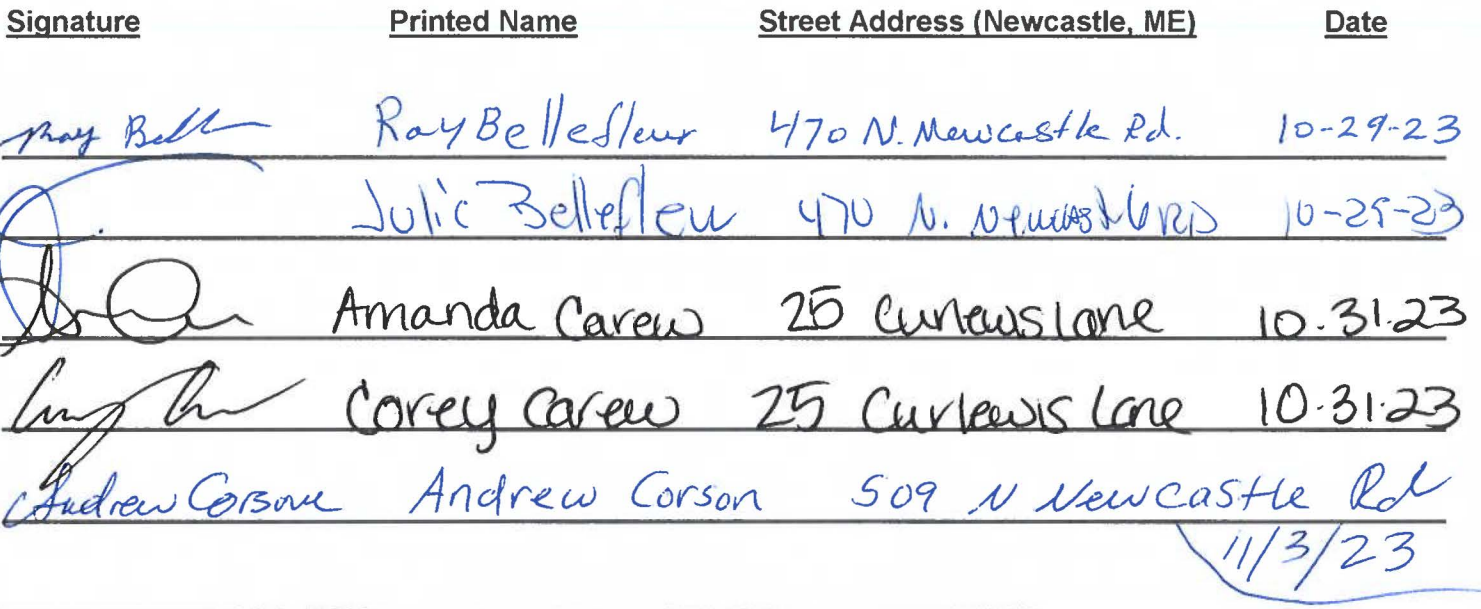 Signature Printed Name Street Address (Newcastle, ME) Date
Ray Bell Ray Bellefleur 470 N. Newcastle Rd. 10-29-23
Julie Bellefleu 470 N. Newcastle RD 10-29-23
Amanda Carew 25 Curlewis Lane 10.31.23
Corey Carew 25 Curlewis Lane 10.31.23
Andrew Corson Andrew Corson 509 N Newcastle Rd
11/3/23